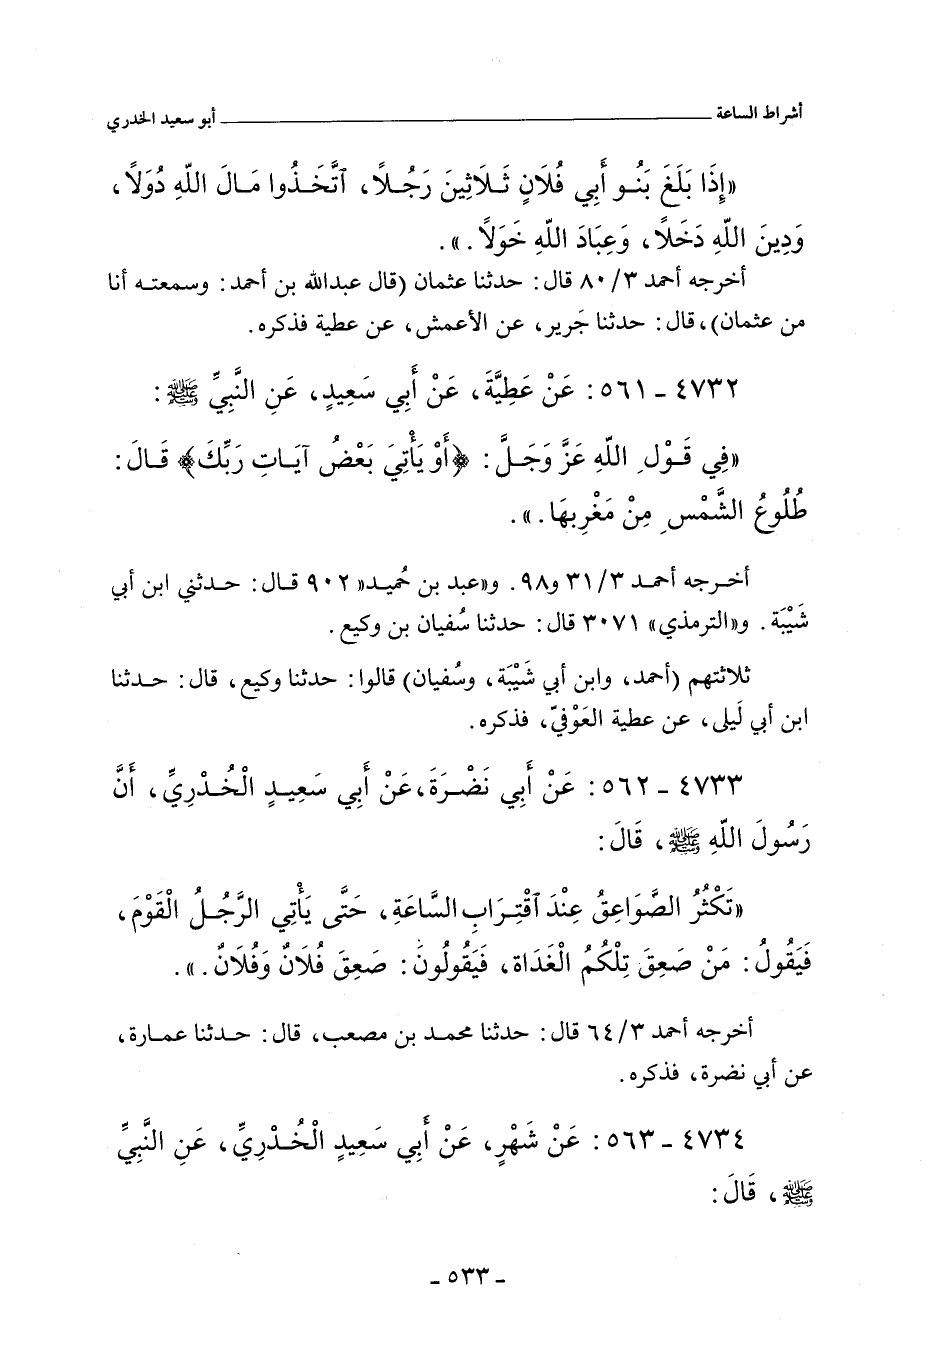 أشراط الساعة ــــــــــــ أبو سعيد الخدري
«إِذَا بَلَغَ بَنُو أَبِي فُلَانٍ ثَلَاثِينَ رَجُلًا، ٱتَّخَذُوا مَالَ اللّهِ دُوَلًا،
وَدِينَ اللّهِ دَخَلًا، وَعِبَادَ اللّهِ خَوَلًا.».
أخرجه أحمد ٣/ ٨٠ قال: حدثنا عثمان (قال عبدالله بن أحمد: وسمعته أنا
من عثمان)، قال: حدثنا جَرير، عن الأعمش، عن عطية فذكره.
٤٧٣٢ - ٥٦١: عَنْ عَطِيَّةَ، عَنْ أَبِي سَعِيدٍ، عَنِ النَّبِيِّ ﷺ:
«فِي قَوْلِ اللّهِ عَزَّ وَجَلَّ: ﴿أَوْ يَأْتِيَ بَعْضُ آيَاتِ رَبِّكَ﴾ قَالَ:
طُلُوعُ الشَّمْسِ مِنْ مَغْرِبِهَا.».
أخرجه أحمد ٣/ ٣١ و٩٨. و«عبد بن حُميد» ٩٠٢ قال: حدثني ابن أبي
شَيْبَة. و«الترمذي» ٣٠٧١ قال: حدثنا سُفيان بن وكيع.
ثلاثتهم (أحمد، وابن أبي شَيْبَة، وسُفيان) قالوا: حدثنا وكيع، قال: حدثنا
ابن أبي لَيلى، عن عطية العَوْفيّ، فذكره.
٤٧٣٣ - ٥٦٢: عَنْ أَبِي نَضْرَةَ، عَنْ أَبِي سَعِيدٍ الْخُدْرِيِّ، أَنَّ
رَسُولَ اللّهِ ﷺ، قَالَ:
«تَكْثُرُ الصَّوَاعِقُ عِنْدَ ٱقْتِرَابِ السَّاعَةِ، حَتَّى يَأْتِيَ الرَّجُلُ الْقَوْمَ،
فَيَقُولُ: مَنْ صَعِقَ تِلْكُمُ الْغَدَاةَ، فَيَقُولُونَ: صَعِقَ فُلَانٌ وَفُلَانٌ.».
أخرجه أحمد ٣/ ٦٤ قال: حدثنا محمد بن مصعب، قال: حدثنا عمارة،
عن أبي نضرة، فذكره.
٤٧٣٤ - ٥٦٣: عَنْ شَهْرٍ، عَنْ أَبِي سَعِيدٍ الْخُدْرِيِّ، عَنِ النَّبِيِّ
ﷺ، قَالَ:
- ٥٣٣ -